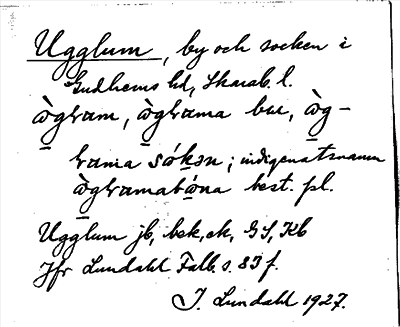 Ugglum, by och socken i
Gudhems hd, Skarab. l.
ὼgram, ὼgrama bur, ὼg-
rama sókən; indigenatsnamn
ὼgramabóna best. pl.
Ugglum jb, bsk, ek, GS, Kb
Jfr Lundahl Falb. s. 83 f.
I. Lundahl 1927.